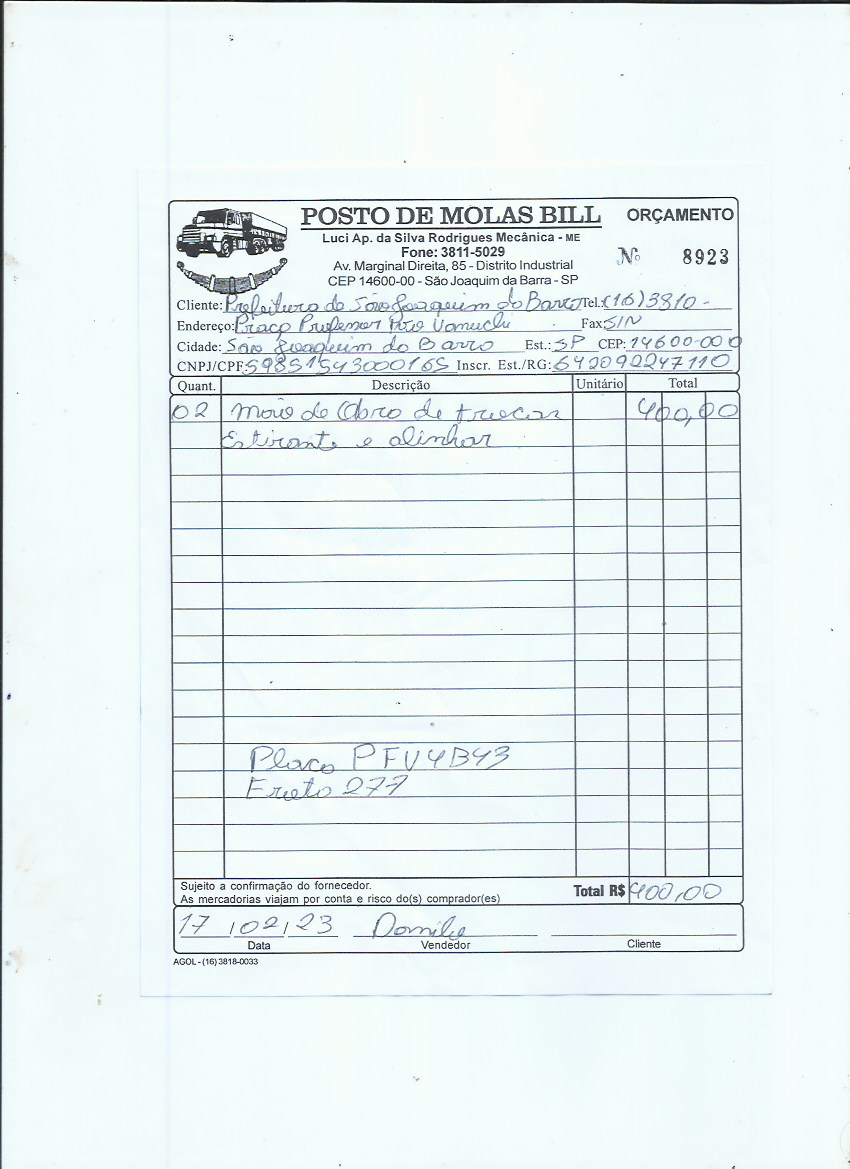 POSTO DE MOLAS BILL
ORÇAMENTO
Luci Ap. da Silva Rodrigues Mecânica - ME
Fone: 3811-5029
Av. Marginal Direita, 85 - Distrito Industrial
CEP 14600-00 - São Joaquim da Barra - SP
Nº 8923
Cliente: Prefeitura de São Joaquim da Barra Tel.: (16) 3810-
Endereço: Praça Professor Pio Fax: S/N
Cidade: São Joaquim da Barra Est.: SP CEP: 14600-000
CNPJ/CPF: 59851543000165 Inscr. Est./RG: 642092247110
Quant. Descrição Unitário Total
02 Mão de Obra de trocar 400,00
Estirante e alinhar
Placa PFV4B43
277
Sujeito a confirmação do fornecedor.
As mercadorias viajam por conta e risco do(s) comprador(es)
Total R$ 400,00
17/02/23
Data Vendedor Cliente
AGOL - (16) 3818-0033